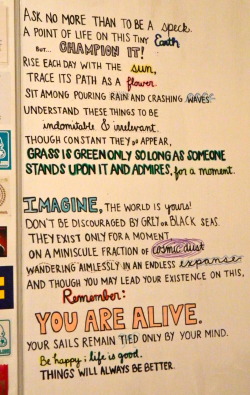 ASK NO MORE THAN TO BE A speck.
A POINT OF LIFE ON THIS TINY Earth
BUT... CHAMPION IT!
RISE EACH DAY WITH THE sun,
TRACE ITS PATH AS A flower.
SIT AMONG POURING RAIN AND CRASHING WAVES.
UNDERSTAND THESE THINGS TO BE
indomitable & irrelevant.
THOUGH CONSTANT THEY do APPEAR,
GRASS IS GREEN ONLY SO LONG AS SOMEONE
STANDS UPON IT AND ADMIRES, for a moment.
IMAGINE, THE WORLD IS yours!
DON'T BE DISCOURAGED BY GREY or BLACK SEAS.
THEY EXIST ONLY FOR A MOMENT
ON A MINISCULE FRACTION OF cosmic dust
WANDERING AIMLESSLY IN AN ENDLESS expanse.
AND THOUGH YOU MAY LEAD YOUR EXISTENCE ON THIS,
Remember:
YOU ARE ALIVE.
YOUR SAILS REMAIN TIED ONLY BY YOUR MIND.
Be happy; life is good.
THINGS WILL ALWAYS BE BETTER.